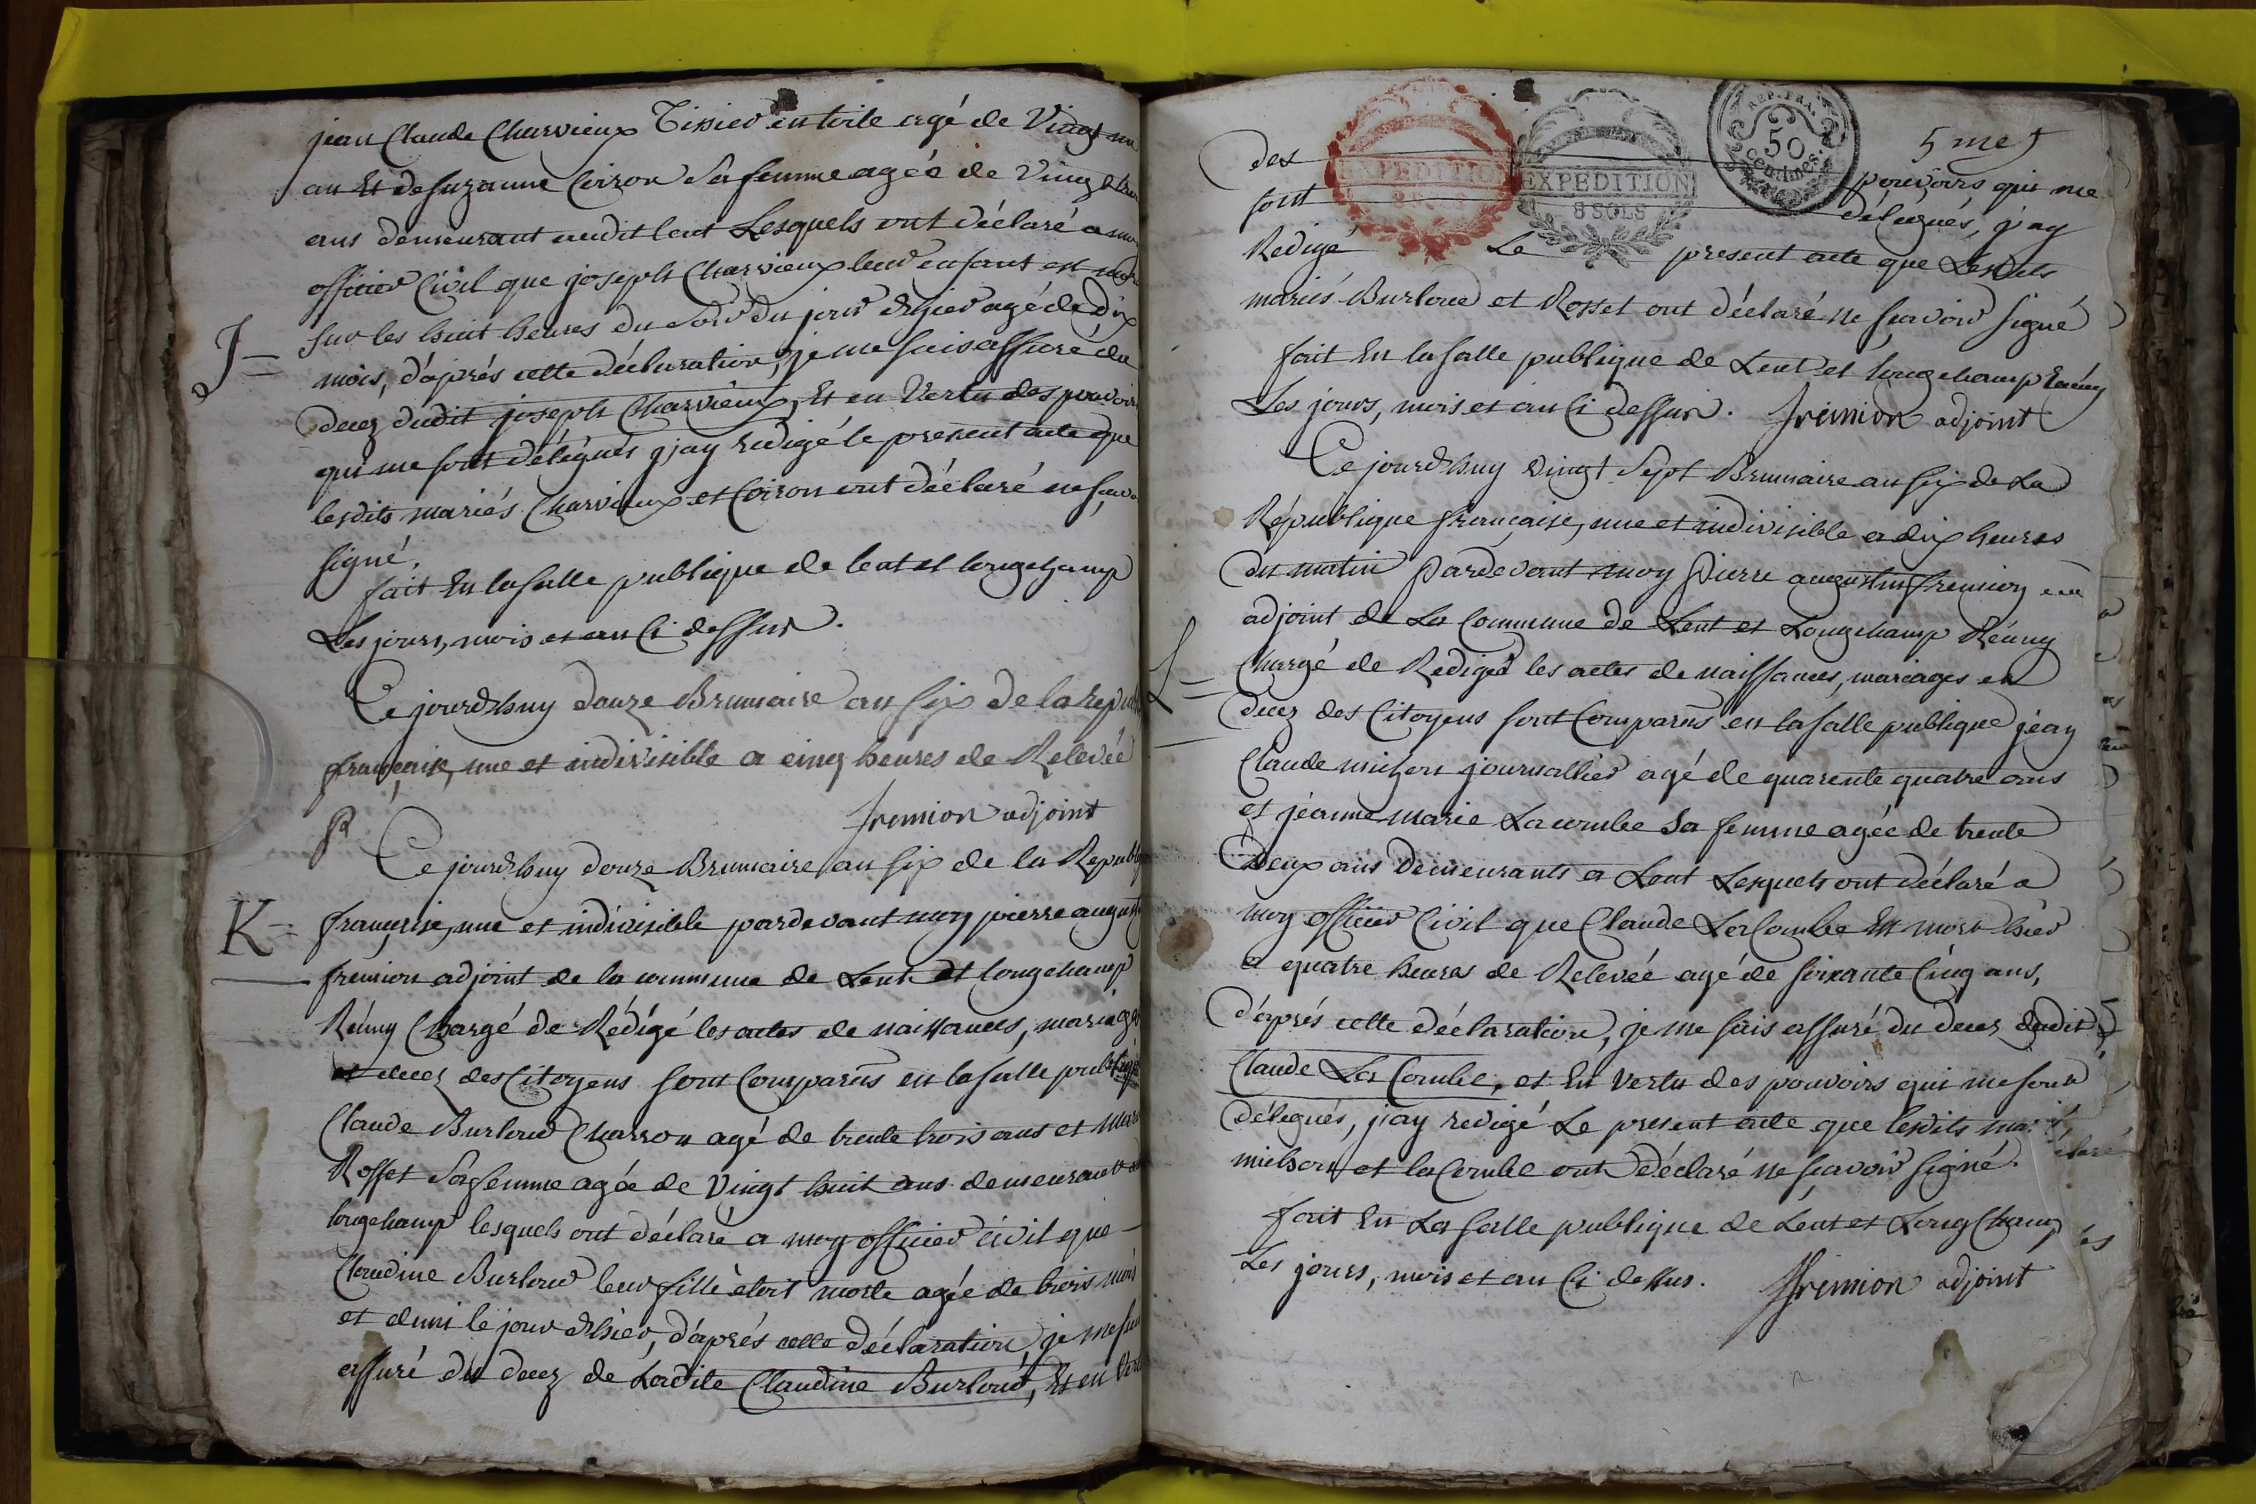 jean Claude Charvieux Tissier en toile agé de Vingt un
an Et de Suzanne Coizon Sa femme agée de Vingt
ans demeurant audit lent Lesquels ont déclaré a moy
officier Civil que joseph Charvieux leur enfant est mort
J= Sur les huit heures du Soir du jour d'hier agé de dix
mois, d'aprés cette déclaration, je me suis assure du
decez dudit joseph Charvieux, Et en Vertu des pouvoirs
qui me sont délégués j'ay redigé le present acte que
lesdits mariés Charvieux et Coizon ont déclaré ne
signé.
fait En la salle publique de lent et longchamp
Les jours, mois et an Ci dessus.
Ce jourd'huy douze Brumaire an six de la
française, une et indivisible a cinq heures de Relevée
fremion adjoint
Ce jourd'huy douze Brumaire an six de la Republi
K= française, une et indivisible pardevant moy pierre august
fremion adjoint de la commune de Lent et longchamp
Réuny Chargé de Rédigé les actes de naissances, mariages
et decez des Citoyens sont Comparus en la salle publique
Claude Burloud Charron agé de trente trois ans et
Rosset Sa femme agée de Vingt huit ans demeurant
longchamp lesquels ont déclaré a moy officier civil que
Claudine Burloud leur fille étoit morte agée de trois mois
et demi le jour d'hier, d'aprés cette déclaration, je me suis
assuré du decez de Ladite Claudine Burloud, Et en
5me 5
EXPEDITION
EXPEDITION
8 SOLS
REP. FRA.
50
Centimes.
des pouvoirs qui me
sont délegués, j'ay
Redigé Le present acte que Lesdits
mariés Burloud et Rosset ont déclaré ne scavoir signé
fait En la salle publique de Lent et longchamp Réuny
Les jours, mois et an Ci dessus. fremion adjoint
Ce jourd'huy vingt Sept Brumaire an six de La
République française, une et indivisible a dix heures
du matin Pardevant moy Pierre augustin fremion
adjoint de La Commune de Lent et Longchamp Réuny
L= Chargé de Rediger les actes de naissances, mariages et
decez des Citoyens sont Comparus en la salle publique jean
Claude michon journallier agé de quarente quatre ans
et jeanne marie Lacombe Sa femme agée de trente
Deux ans Demeurants a Lent Lesquels ont déclaré a
moy officier Civil que Claude La Combe Est mort hier
a quatre heures de Relevée agé de soixante Cinq ans,
d'aprés cette déclaration, je me suis assuré du decez dudit
Claude La Combe, et En vertu des pouvoirs qui me sont
délegués, j'ay redigé Le present acte que lesdits
michon et la Combe ont Déclaré ne scavoir signé.
fait En La salle publique de Lent et Longchamp
Les jours, mois et an Ci dessus. fremion adjoint